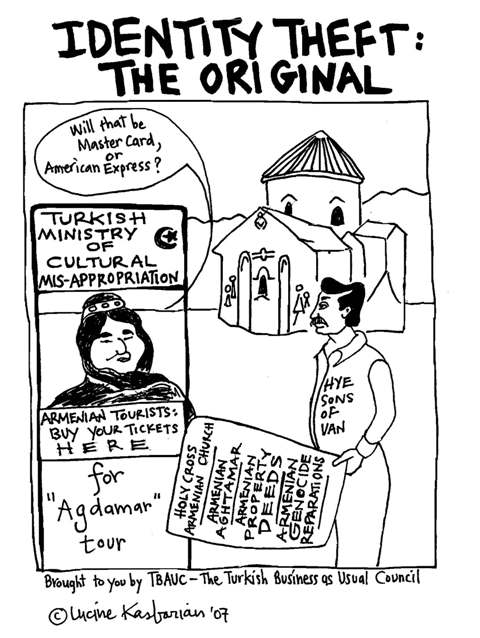 IDENTITY THEFT:
THE ORIGINAL
Will that be
Master Card,
or
American Express?
TURKISH
MINISTRY
OF
CULTURAL
MIS-APPROPRIATION
ARMENIAN TOURISTS:
BUY YOUR TICKETS
HERE
for
"Agdamar"
tour
HYE
SONS
OF
VAN
HOLY CROSS
ARMENIAN CHURCH
ARMENIAN
AGHTAMAR
ARMENIAN
PROPERTY
DEEDS
ARMENIAN
GENOCIDE
REPARATIONS
Brought to you by TBAUC – The Turkish Business as Usual Council
© Lucine Kasbarian '07